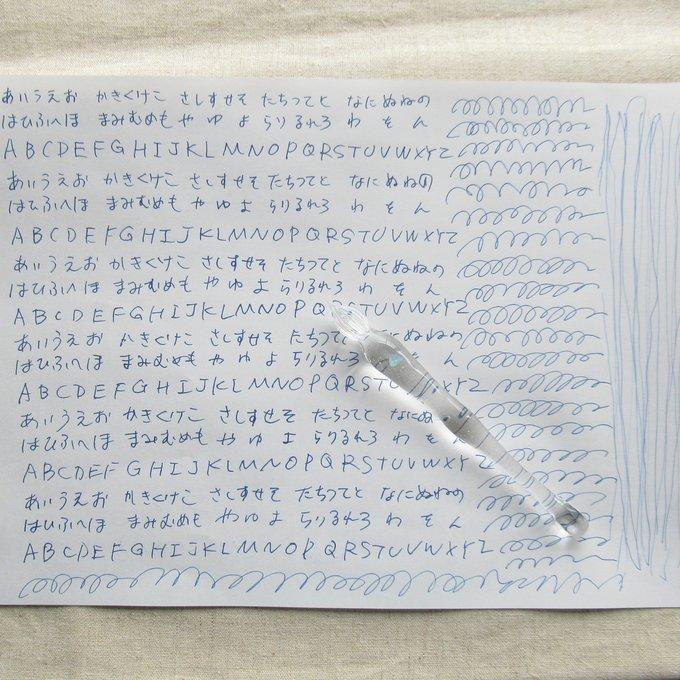 あいうえお かきくけこ さしすせそ たちつてと なにぬねの
はひふへほ まみむめも や ゆ よ らりるれろ わ を ん
A B C D E F G H I J K L M N O P Q R S T U V W X Y Z
あいうえお かきくけこ さしすせそ たちつてと なにぬねの
はひふへほ まみむめも や ゆ よ らりるれろ わ を ん
A B C D E F G H I J K L M N O P Q R S T U V W X Y Z
あいうえお かきくけこ さしすせそ たちつてと なにぬねの
はひふへほ まみむめも や ゆ よ らりるれろ わ を ん
A B C D E F G H I J K L M N O P Q R S T U V W X Y Z
あいうえお かきくけこ さしすせそ たちつて にぬねの
はひふへほ まみむめも や ゆ よ らりるれろ を ん
A B C D E F G H I J K L M N O P Q R S T U X Y Z
あいうえお かきくけこ さしすせそ たちつてと なにぬ
はひふへほ まみむめも や ゆ よ らりるれろ わ を
A B C D E F G H I J K L M N O P Q R S T U V W X Y Z
あいうえお かきくけこ さしすせそ たちつてと なにぬねの
はひふへほ まみむめも や ゆ よ らりるれろ わ を ん
A B C D E F G H I J K L M N O P Q R S T U V W X Y Z